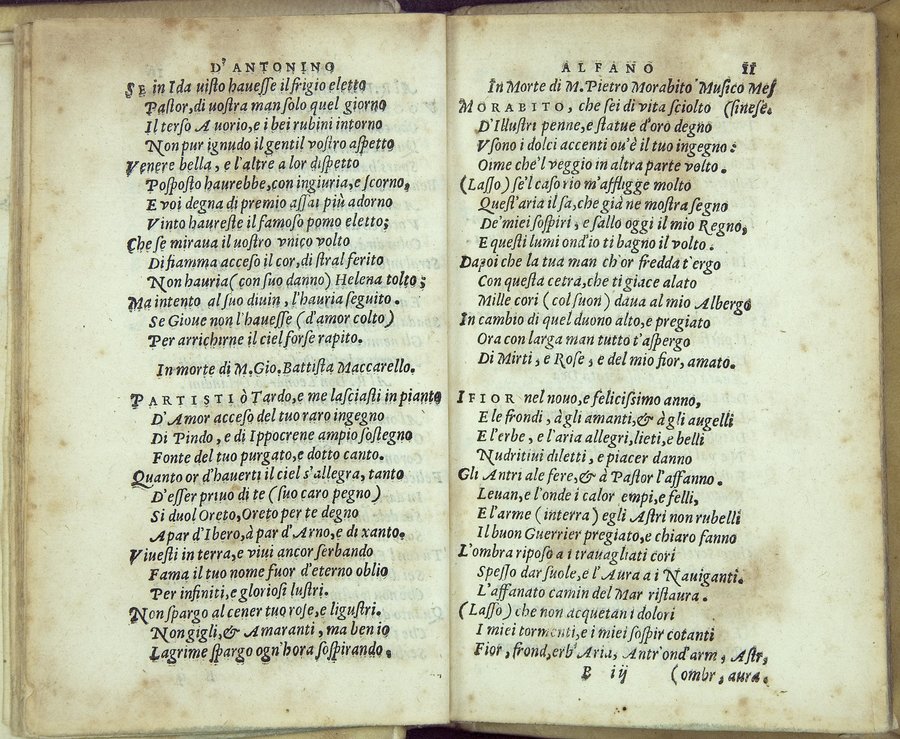 D'ANTONINO
SE in Ida uisto hauesse il frigio eletto
Pastor, di uostra man solo quel giorno
Il terso Auorio, e i bei rubini intorno
Non pur ignudo il gentil vostro aspetto
Venere bella, e l'altre a lor dispetto
Posposto haurebbe, con ingiuria, e scorno,
E voi degna di premio assai più adorno
Vinto haureste il famoso pomo eletto;
Che se miraua il uostro vnico volto
Di fiamma acceso il cor, di stral ferito
Non hauria (con suo danno) Helena tolto;
Ma intento al suo diuin, l'hauria seguito.
Se Gioue non l'hauesse (d'amor colto)
Per arrichirne il ciel forse rapito.
In morte di M. Gio. Battista Maccarello.
PARTISTI ò Tardo, e me lasciasti in pianto
D'Amor acceso del tuo raro ingegno
Di Pindo, e di Ippocrene ampio sostegno
Fonte del tuo purgato, e dotto canto.
Quanto or d'hauerti il ciel s'allegra, tanto
D'esser priuo di te (suo caro pegno)
Si duol Oreto, Oreto per te degno
A par d'Ibero, à par d'Arno, e di xanto.
Viuesti in terra, e viui ancor serbando
Fama il tuo nome fuor d'eterno oblio
Per infiniti, e gloriosi lustri.
Non spargo al cener tuo rose, e ligustri.
Non gigli, & Amaranti, ma ben io
Lagrime spargo ogn'hora sospirando.
ALFANO 11
In Morte di M. Pietro Morabito Musico Mes
MORABITO, che sei di vita sciolto (sinese.
D'Illustri penne, e statue d'oro degno
Vsono i dolci accenti ou'è il tuo ingegno:
Oime che'l veggio in altra parte volto.
(Lasso) se'l caso rio m'affligge molto
Quest'aria il sa, che già ne mostra segno
De' miei sospiri, e sallo oggi il mio Regno,
E questi lumi ond'io ti bagno il volto.
Dapoi che la tua man ch'or fredda t'ergo
Con questa cetra, che ti giace alato
Mille cori (col suon) daua al mio Albergo
In cambio di quel duono alto, e pregiato
Ora con larga man tutto t'aspergo
Di Mirti, e Rose, e del mio fior, amato.
I FIOR nel nouo, e felicissimo anno,
E le frondi, à gli amanti, & à gli augelli
E l'erbe, e l'aria allegri, lieti, e belli
Nudritiui diletti, e piacer danno
Gli Antri ale fere, & à Pastor l'affanno.
Leuan, e l'onde i calor empi, e felli,
E l'arme (interra) egli Astri non rubelli
Il buon Guerrier pregiato, e chiaro fanno
L'ombra riposo a i trauagliati cori
Spesso dar suole, e l'Aura a i Nauiganti.
L'affanato camin del Mar ristaura.
(Lasso) che non acquetan i dolori
I miei tormenti, e i miei sospir cotanti
Fior, frond, erb' Aria, Antr' ond' arm, Astr,
B iij (ombr, aura.